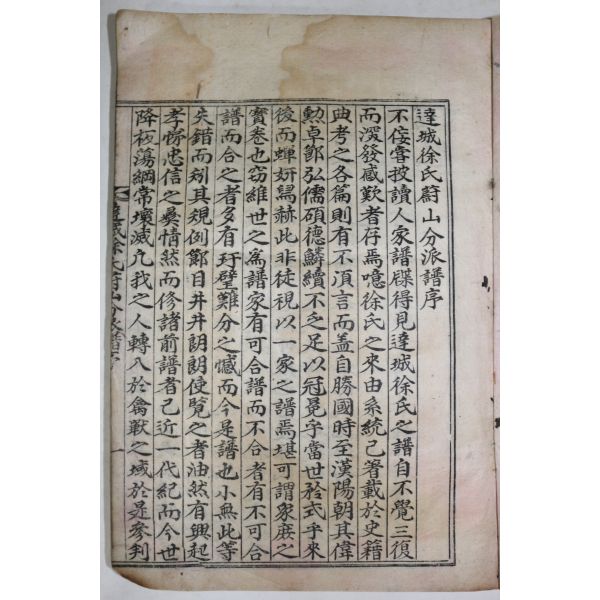 達城徐氏蔚山分派譜序
不佞嘗披讀人家譜牒得見達城徐氏之譜自不覺三復
而深發感歎者存焉噫徐氏之來由系統已著載於史籍
典考之各篇則有不須言而盖自勝國時至漢陽朝其偉
勳卓節弘儒碩德鱗續不乏足以冠冕乎當世矜式乎來
後而蟬姸舃赫此非徒視以一家之譜焉堪可謂家庶之
寶卷也窃維世之爲譜家有可合譜而不合者有不可合
譜而合之者多有玗璧難分之憾而今是譜也小無此等
失錯而刱其規例節目井井朗朗使覧之者油然有興起
孝悌忠信之彛情然而修諸前譜者已近一代紀而今世
降板蕩綱常壞滅凢我之人轉入於禽獸之域於是參判
達城徐氏蔚山分派譜序 一